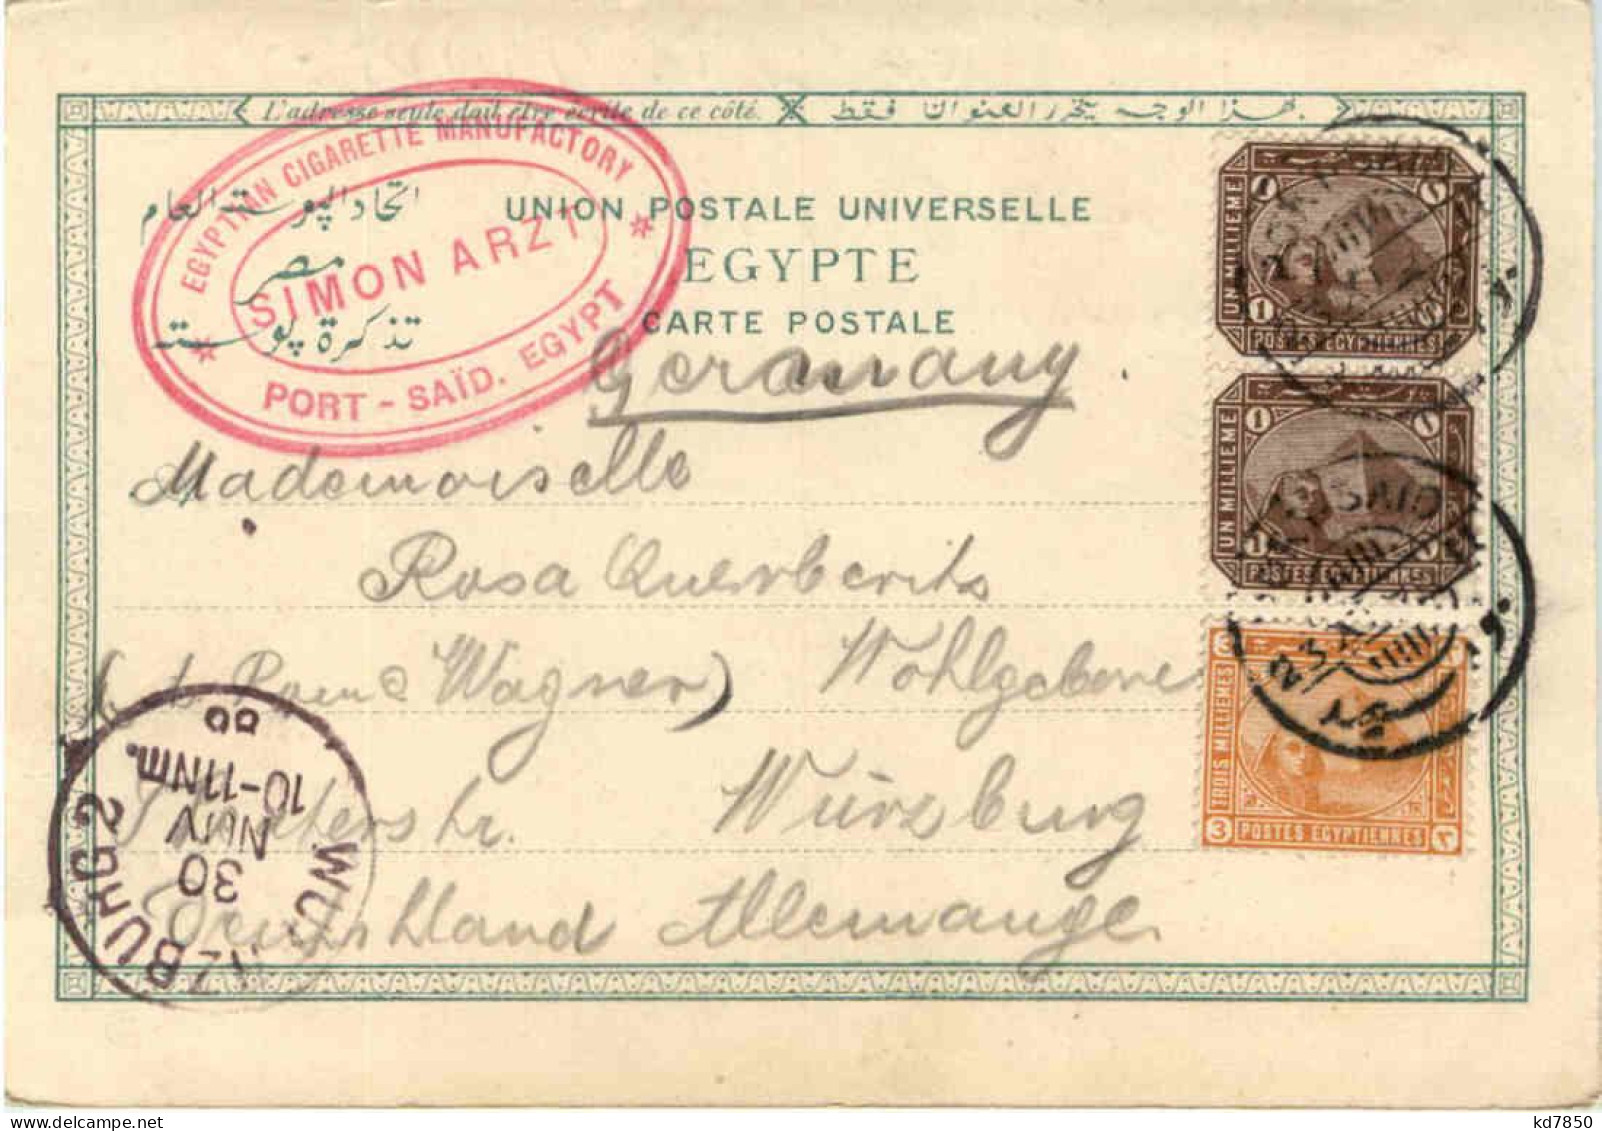 L'adresse seule doit être écrite de ce côté.
بهذا الوجه يحرر العنوان فقط.
اتحاد البوسته العام
UNION POSTALE UNIVERSELLE
مصر
EGYPTE
تذكرة بوسته
CARTE POSTALE
EGYPTIAN CIGARETTE MANUFACTORY
SIMON ARZT
PORT - SAÏD. EGYPT
Germany.
Mademoiselle
Rosa
Wagner) Wohlgeboren
Würzburg
Deutschland Allemange
WÜRZBURG 2
30
NOV
10-11Nm.
UN MILLIEME
1
POSTES EGYPTIENNES
UN MILLIEME
1
POSTES EGYPTIENNES
TROIS MILLIEMES
3
POSTES EGYPTIENNES
٣
PORT SAID
23 XI
kd7850